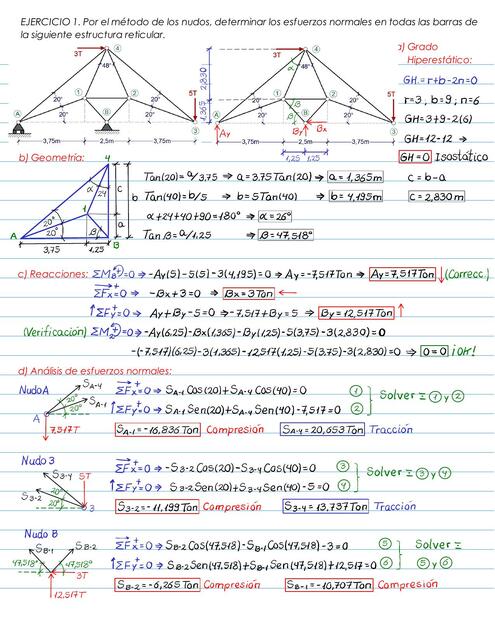 EJERCICIO 1. Por el método de los nudos, determinar los esfuerzos normales en todas las barras de
la siguiente estructura reticular.
3T
4
48°
1
2
20°
20°
20°
20°
A
B
3
5T
3,75m
2,5m
3,75m
2,830
1,365
3T
4
α
48°
1
2
β
β
20°
20°
20°
20°
5T
A
Ay
By
B
Bx
3
1,25
1,25
3,75m
2,5m
3,75m
a) Grado
Hiperestático:
GH = r+b-2n=0
r=3, b=9; n=6
GH=3+9-2(6)
GH=12-12 ⇒
GH=0 Isostático
b) Geometría:
4
α
24
1
20°
20°
β
A
B
3,75
1,25
c
a
b
Tan(20)=a/3,75 ⇒ a=3,75Tan(20) ⇒ a=1,365m
c=b-a
Tan(40)=b/5 ⇒ b=5Tan(40) ⇒ b=4,195m
c=2,830m
α+24+40+90=180° ⇒ α=26°
Tanβ=a/1,25 ⇒ β=47,518°
c) Reacciones: ΣM_B=0 ⇒ -Ay(5)-5(5)-3(4,195)=0 ⇒ Ay=-7,517Ton ⇒ Ay=7,517Ton ↓ (Correcc.)
ΣFx=0 ⇒ -Bx+3=0 ⇒ Bx=3Ton ←
↑ΣFy=0 ⇒ Ay+By-5=0 ⇒ -7,517+By=5 ⇒ By=12,517Ton ↑
(Verificación) ΣM_2=0 ⇒ -Ay(6,25)-Bx(1,365)-By(1,25)-5(3,75)-3(2,830)=0
-(-7,517)(6,25)-3(1,365)-12,517(1,25)-5(3,75)-3(2,830)=0 ⇒ 0=0 ¡OK!
d) Análisis de esfuerzos normales:
Nudo A
S_A-4
S_A-1
20°
20°
A
7,517T
ΣFx=0 ⇒ S_A-1 Cos(20)+S_A-4 Cos(40)=0 1
↑ΣFy=0 ⇒ S_A-1 Sen(20)+S_A-4 Sen(40)-7,517=0 2
Solver Ξ 1 y 2
S_A-1=-16,836Ton Compresión S_A-4=20,653Ton Tracción
Nudo 3
S_3-4
5T
S_3-2
20°
20°
3
ΣFx=0 ⇒ -S_3-2 Cos(20)-S_3-4 Cos(40)=0 3
↑ΣFy=0 ⇒ S_3-2 Sen(20)+S_3-4 Sen(40)-5=0 4
Solver Ξ 3 y 4
S_3-2=-11,199Ton Compresión S_3-4=13,737Ton Tracción
Nudo B
S_B-1
S_B-2
47,518°
47,518°
3T
12,517T
ΣFx=0 ⇒ S_B-2 Cos(47,518)-S_B-1 Cos(47,518)-3=0 5
↑ΣFy=0 ⇒ S_B-2 Sen(47,518)+S_B-1 Sen(47,518)+12,517=0 6
Solver Ξ
5 y 6
S_B-2=-6,265Ton Compresión S_B-1=-10,707Ton Compresión